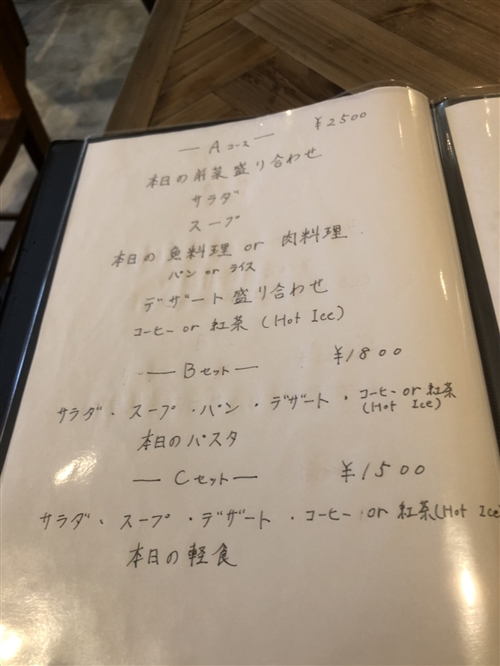 — A コース — ¥2500
本日の前菜盛り合わせ
サラダ
スープ
本日の魚料理 or 肉料理
パン or ライス
デザート盛り合わせ
コーヒー or 紅茶 (Hot Ice)
— B セット — ¥1800
サラダ・スープ・パン・デザート・コーヒー or 紅茶 (Hot Ice)
本日のパスタ
— C セット — ¥1500
サラダ・スープ・デザート・コーヒー or 紅茶 (Hot Ice
本日の軽食